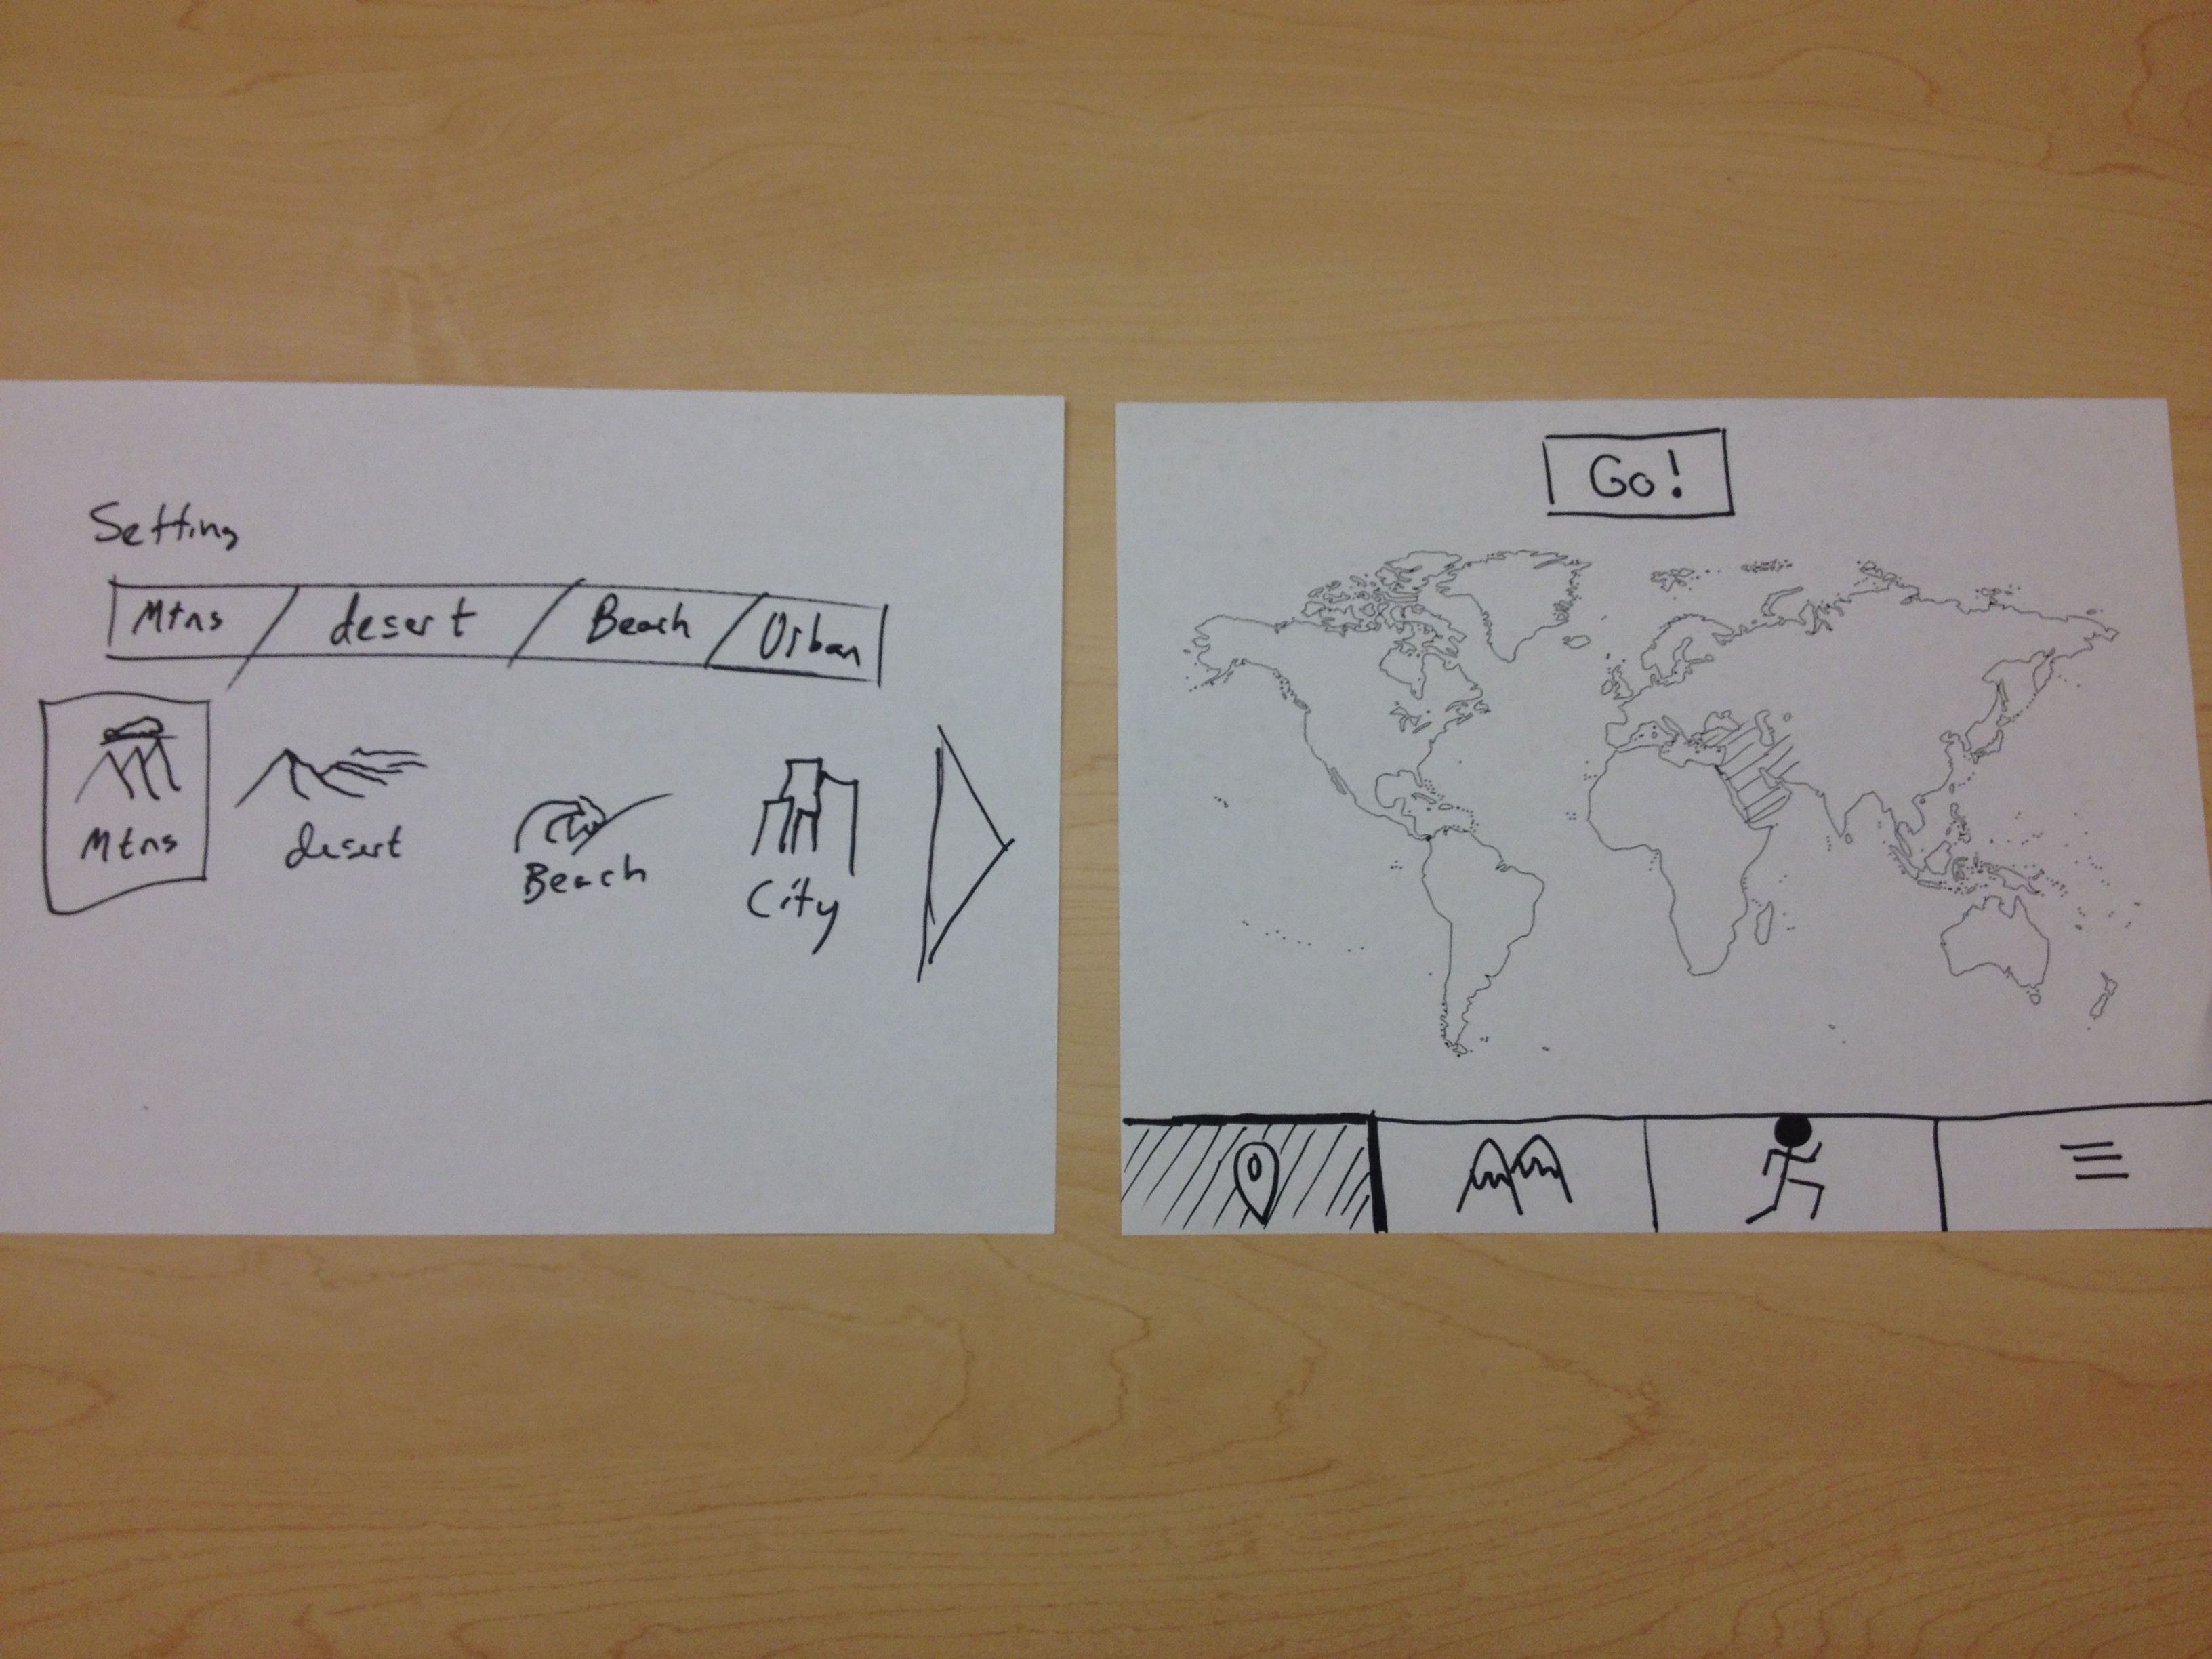 Setting
Mtns / desert / Beach / Urban
Mtns desert Beach City
Go!